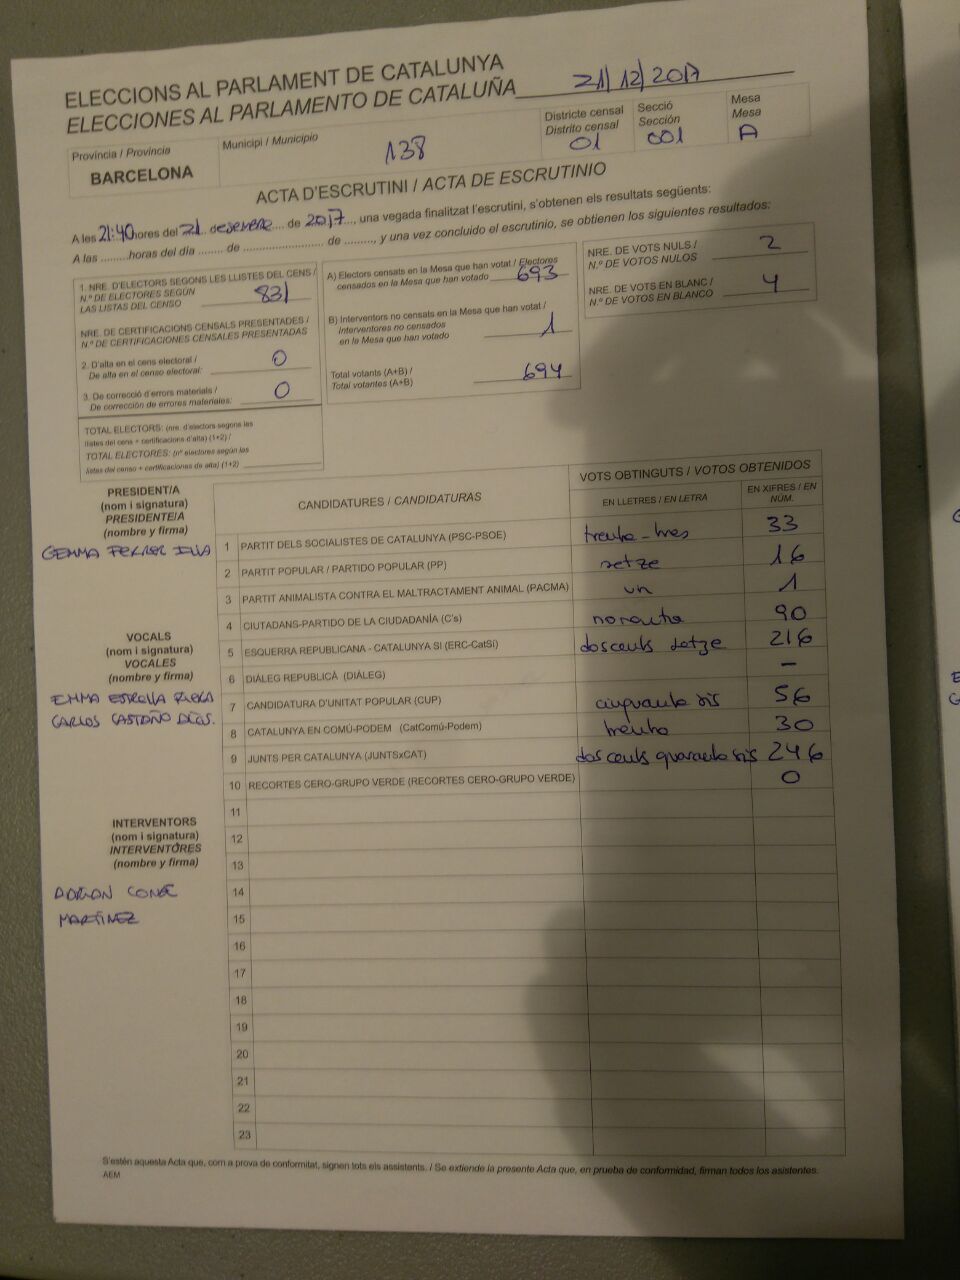 ELECCIONS AL PARLAMENT DE CATALUNYA
ELECCIONES AL PARLAMENTO DE CATALUÑA 21/12/2017
Província / Provincia
BARCELONA
Municipi / Municipio
138
Districte censal
Distrito censal
01
Secció
Sección
001
Mesa
Mesa
A
ACTA D'ESCRUTINI / ACTA DE ESCRUTINIO
A les 21:40 hores del 21 desembre de 2017, una vegada finalitzat l'escrutini, s'obtenen els resultats següents:
A las ......... horas del día ........ de ........................ de ........., y una vez concluido el escrutinio, se obtienen los siguientes resultados:
1. NRE. D'ELECTORS SEGONS LES LLISTES DEL CENS /
N.º DE ELECTORES SEGÚN
LAS LISTAS DEL CENSO 831
NRE. DE CERTIFICACIONS CENSALS PRESENTADES /
N.º DE CERTIFICACIONES CENSALES PRESENTADAS
2. D'alta en el cens electoral /
De alta en el censo electoral: 0
3. De correcció d'errors materials /
De corrección de errores materiales: 0
TOTAL ELECTORS: (nre. d'electors segons les
llistes del cens + certificacions d'alta) (1+2) /
TOTAL ELECTORES: (nº electores según las
listas del censo + certificaciones de alta) (1+2)
A) Electors censats en la Mesa que han votat / Electores
censados en la Mesa que han votado 693
B) Interventors no censats en la Mesa que han votat /
Interventores no censados
en la Mesa que han votado 1
Total votants (A+B) /
Total votantes (A+B) 694
NRE. DE VOTS NULS /
N.º DE VOTOS NULOS 2
NRE. DE VOTS EN BLANC /
N.º DE VOTOS EN BLANCO 4
PRESIDENT/A
(nom i signatura)
PRESIDENTE/A
(nombre y firma)
GEMMA FERRER
VOCALS
(nom i signatura)
VOCALES
(nombre y firma)
EMMA ESTRELLA
CARLOS CASTAÑO
INTERVENTORS
(nom i signatura)
INTERVENTORES
(nombre y firma)
ADRIAN CONE
MARTINEZ
CANDIDATURES / CANDIDATURAS
VOTS OBTINGUTS / VOTOS OBTENIDOS
EN LLETRES / EN LETRA
EN XIFRES / EN
NÚM.
1 PARTIT DELS SOCIALISTES DE CATALUNYA (PSC-PSOE) trenta-tres 33
2 PARTIT POPULAR / PARTIDO POPULAR (PP) setze 16
3 PARTIT ANIMALISTA CONTRA EL MALTRACTAMENT ANIMAL (PACMA) un 1
4 CIUTADANS-PARTIDO DE LA CIUDADANÍA (C's) noranta 90
5 ESQUERRA REPUBLICANA - CATALUNYA SI (ERC-CatSí) doscents setze 216
6 DIÀLEG REPUBLICÀ (DIÀLEG) –
7 CANDIDATURA D'UNITAT POPULAR (CUP) cinquanta sis 56
8 CATALUNYA EN COMÚ-PODEM (CatComú-Podem) trenta 30
9 JUNTS PER CATALUNYA (JUNTSxCAT) dos cents quaranta sis 246
10 RECORTES CERO-GRUPO VERDE (RECORTES CERO-GRUPO VERDE) 0
11
12
13
14
15
16
17
18
19
20
21
22
23
S'estén aquesta Acta que, com a prova de conformitat, signen tots els assistents. / Se extiende la presente Acta que, en prueba de conformidad, firman todos los asistentes.
AEM